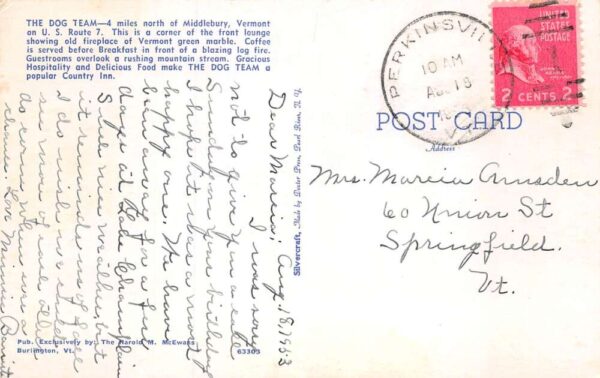 THE DOG TEAM—4 miles north of Middlebury, Vermont
on U. S. Route 7. This is a corner of the front lounge
showing old fireplace of Vermont green marble. Coffee
is served before Breakfast in front of a blazing log fire.
Guestrooms overlook a rushing mountain stream. Gracious
Hospitality and Delicious Food make THE DOG TEAM a
popular Country Inn.
Aug. 18, 1953
Dear Marcia;
I was sorry
not to give you a call
Sunday on your birthday
I hope it was a most
happy one. We have
been away for a few
days at Lake Champlain
Such nice weather, but
it reminds us of fall
I do wish we
see more of each other
do come when
chance. Love
Pub. Exclusively by: The Harold M. McEwans
Burlington, Vt.
63303
Silvercraft, Made by Dexter Press, Pearl River, N. Y.
PERKINSVILLE
10 AM
AUG 18
VT.
2 CENTS 2
POST CARD
Address
Mrs. Marcia Amsden
60 Union St
Springfield.
Vt.